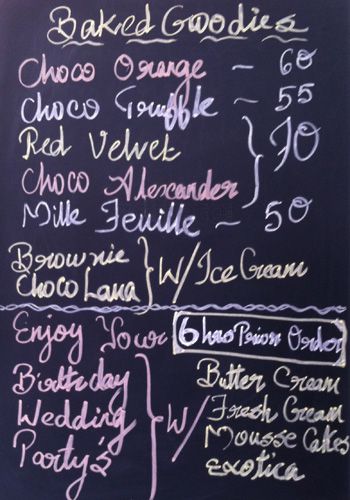 Baked Goodies
Choco Orange - 60
Choco Truffle - 55
Red Velvet
Choco Alexander } 70
Mille Feuille - 50
Brownie
Choco Lana } W/ Ice Cream
Enjoy Your 6 hrs Prior Order
Birthday
Wedding
Party's } W/
Butter Cream
Fresh Cream
Mousse Cakes
Exotica